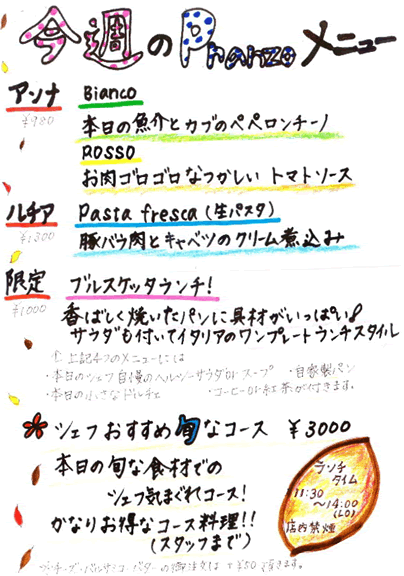 今週のPranzoメニュー
アンナ Bianco
¥980
本日の魚介とカブのペペロンチーノ
ROSSO
お肉ゴロゴロなつかしい トマトソース
ルチア Pasta fresca (生パスタ)
¥1300
豚バラ肉とキャベツのクリーム煮込み
限定 ブルスケッタランチ!
¥1000
香ばしく焼いたパンに具材がいっぱい♪
サラダも付いてイタリアのワンプレートランチスタイル
上記4つのメニューには
・本日のシェフ自慢のヘルシーサラダorスープ ・自家製パン
・本日の小さなドルチェ ・コーヒーor紅茶が付きます。
シェフおすすめ旬なコース ¥3000
本日の旬な食材での
シェフ気まぐれコース!
かなりお得なコース料理!!
(スタッフまで)
ランチ
タイム
11:30
〜14:00
(LO)
店内禁煙
チーズ・バルサミコ・バターの御注文は で¥50頂きます。